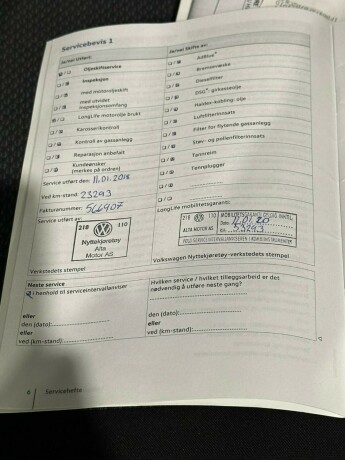 Servicebevis 1
Ja/nei Utført:
Oljeskiftservice
Inspeksjon
med motoroljeskift
med utvidet
inspeksjonsomfang
LongLife motorolje brukt
Karosserikontroll
Kontroll av gassanlegg
Reparasjon anbefalt
Kundeønsker
(merkes på ordren)
Service utført den: 11.01.2018
Ved km-stand: 23293
Fakturanummer: 566907
Service utført av:
218 110
Nyttekjøretøy
Alta
Motor AS
Verkstedets stempel
Ja/nei Skifte av:
AdBlue®
Bremsevæske
Dieselfilter
DSG®-girkasseolje
Haldex-kobling: olje
Luftfilterinnsats
Filter for flytende gassanlegg
Støv- og pollenfilterinnsats
Tannreim
Tennplugger
LongLife mobilitetsgaranti:
218 110 MOBILITETSGARANTI
ALTA MOTOR AS
Dato 11.01.20
Km 53293
Volkswagen Nyttekjøretøy-verkstedets stempel
Neste service
I henhold til serviceintervallanviser
eller
den (dato):
eller
ved (km-stand):
Hvilken service / hvilket tilleggsarbeid er det
nødvendig å utføre neste gang?
eller
den (dato):
eller
ved (km-stand):
6 Servicehefte